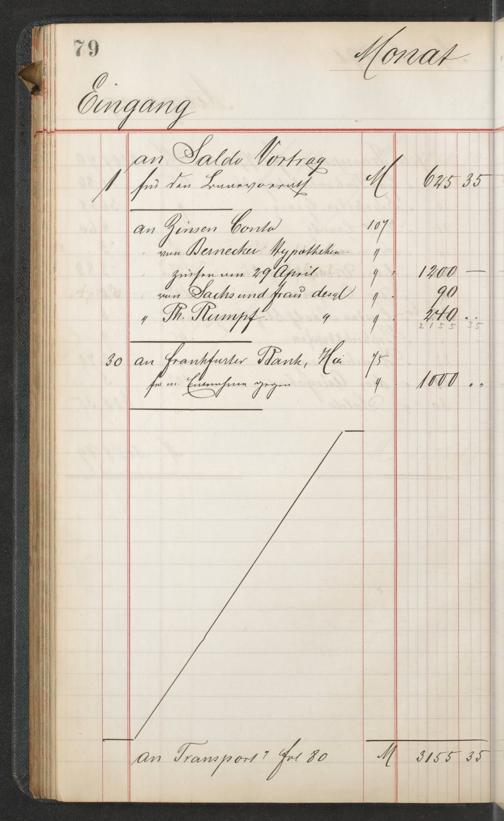 79
Monat
Eingang
an Saldo Vortrag
1 für den Baarvorrath M 625 35
an Zinsen Conto 107
von Bernecker Hypotheken "
zinsen am 29 April " 1200 —
von Sachs und Frau desgl " 90
" Th. Rumpf " " 240 ..
2155 35
30 an Frankfurter Bank, 75
Entnahme gegen " 1000 ..
an Transport fol 80 M 3155 35